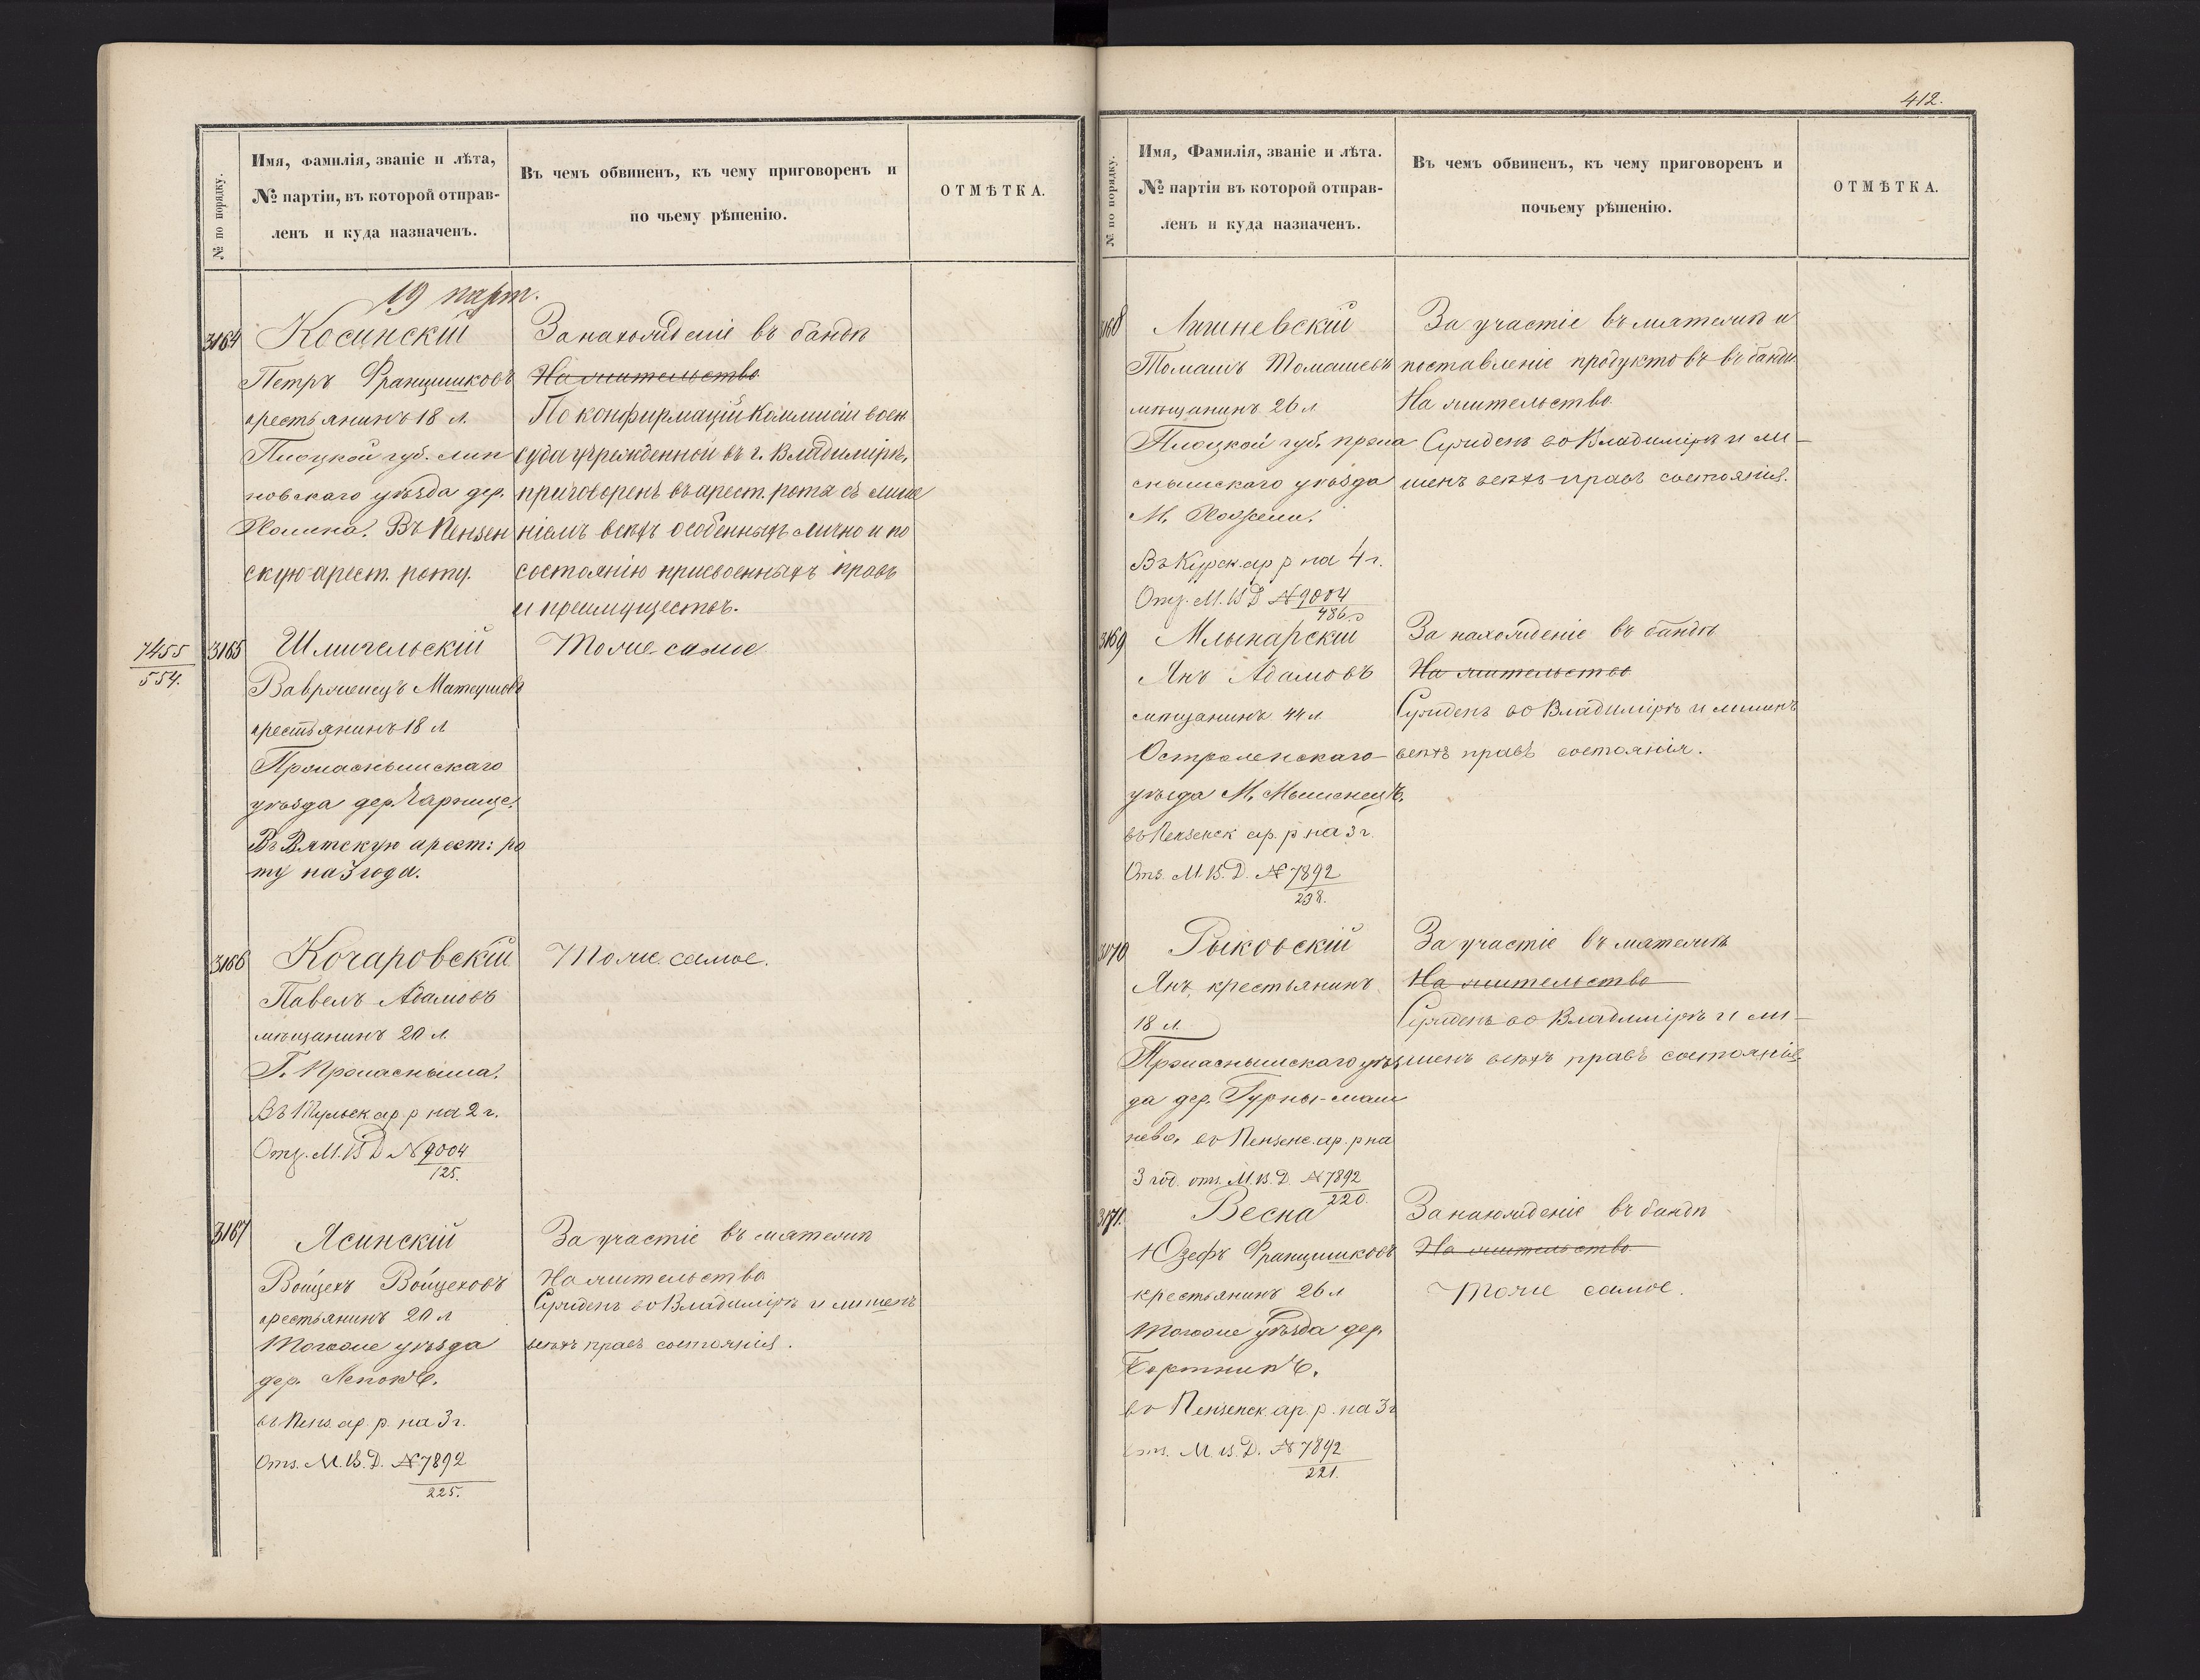 № по порядку.
Имя, Фамилія, званіе и лѣта,
№ партіи, въ которой отправ-
ленъ и куда назначенъ.
Въ чемъ обвиненъ, къ чему приговоренъ и
по чьему рѣшенію.
ОТМѢТКА.
19 парт.
3164
Косинскій
Петръ Францишковъ
крестьянинъ 18 л.
Плоцкой губ. Лип
новскаго уѣзда дер.
Въ Пензен
скую арест. роту.
За нахожденіе въ бандѣ
На жительство
По конфирмаціи Коммисіи воен
суда учрежденной въ г. Владимірѣ,
приговоренъ въ арест. роты съ лише
ніемъ всѣхъ особенныхъ лично и по
состоянію присвоенныхъ правъ
и преимуществъ.
7455
554.
3165
Шмигельскій
Вавржинецъ Матеушовъ
крестьянинъ 18 л
Пржаснышскаго
уѣзда дер. Чарнице.
Въ Вятскую арест: ро
ту на 3 года.
Тоже самое
3166
Кочаровскій
Павелъ Адамовъ
мѣщанинъ 20 л.
Г. Пржасныша.
Въ Тульск ар. р на 2 г.
Отз. М. В Д № 9004
125.
Тоже самое.
3167
Ясинскій
Войцехъ Войцеховъ
крестьянинъ 20 л
Тогоже уѣзда
дер.
въ Пенз. ар. р. на 3 г.
Отз. М. В. Д. № 7892
225.
За участіе въ мятежѣ
На жительство
Сужденъ во Владимірѣ и лишенъ
всѣхъ правъ состоянія.
412.
№ по порядку.
Имя, Фамилія, званіе и лѣта.
№ партіи въ которой отправ-
ленъ и куда назначенъ.
Въ чемъ обвиненъ, къ чему приговоренъ и
почьему рѣшенію.
ОТМѢТКА.
3168
Лишневскій
Томашъ Томашевъ
мѣщанинъ 26 л
Плоцкой губ. Пржа
снышскаго уѣзда
М. Хоржели.
Въ Курск. ар р на 4 г.
Отз. М. В Д № 9004
486.
За участіе въ мятежѣ и
поставленіе продуктовъ въ банды
На жительство.
Сужденъ во Владимірѣ и ли-
шенъ всѣхъ правъ состоянія.
3169
Млынарскій
Янъ Адамовъ
мѣщанинъ 44 л
Остроленскаго
уѣзда М. Мышенецъ.
въ Пензенск ар. р на 3 г.
Отз. М. В. Д. № 7892
238.
За нахожденіе въ бандѣ
На жительство
Сужденъ во Владимірѣ и лишенъ
всѣхъ правъ состоянія.
3170
Рыковскій
Янъ, крестьянинъ
18 л.
Пржаснышскаго уѣз
да дер. Гурны-маш
нево, въ Пензенс. ар. р на
3 год. отз. М. В. Д. № 7892
220.
За участіе въ мятежѣ
На жительство
Сужденъ во Владимірѣ и ли-
шенъ всѣхъ правъ состоянія.
3171.
Весна
Юзефъ Францишковъ
крестьянинъ 26 л
Тогоже уѣзда дер.
въ Пензенск. ар. р. на 3 г
Отз. М. В. Д. № 7892
221.
За нахожденіе въ бандѣ
На жительство
Тоже самое.